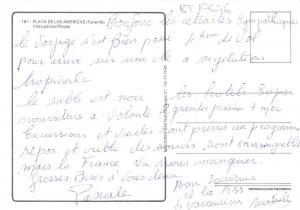 BT 17676
161 - PLAYA DE LAS AMERICAS (Tenerife)
Vista parcial Playas
Bonjour les retraités Sympathiques
le Voyage s'est Bien passé 4 heures de Vol
pour arriver sur une île a végétation
tropicale
le sable est noir
nourriture a Volonté
les hôtels Super
grandes piscines + mer
Excursions et visites sont prévues au programme
repos et oubli des soucis sont envisageables
mais la France Va nous manquer.
Grosses Bises à Vous deux
Pascale
Bon
et la Biss
vacanciers
REPRODUCCION PROHIBIDA